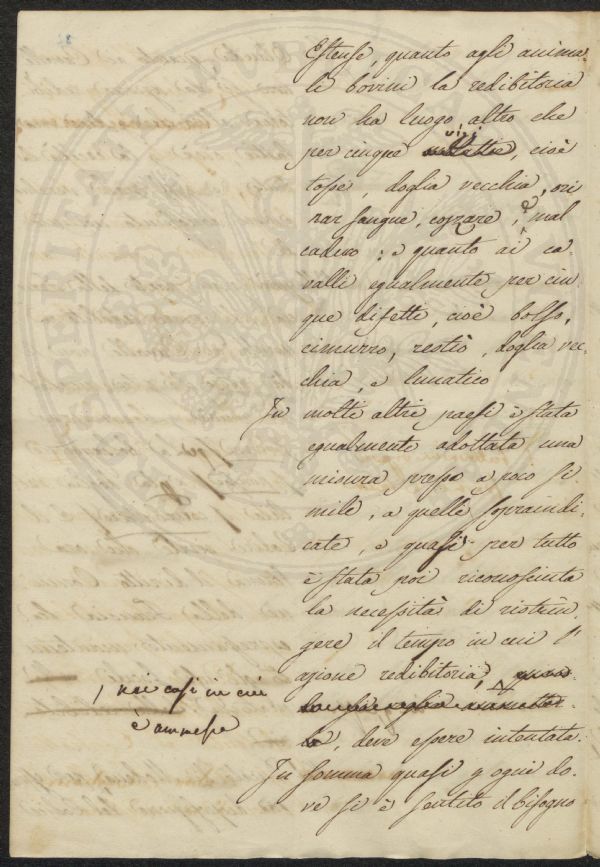 Estense, quanto agli anima-
li bovini la redibitoria
non ha luogo altro che
per cinque vizi, cioè
tosse, doglia vecchia, ori
nar sangue, cozzare, e mal
caduco: e quanto ai ca-
valli egualmente per cin
que difetti, cioè bolso,
cimurro, restìo, doglia vec
chia, e lunatico
In molti altri paesi è stata
egualmente adottata una
misura presso a poco si
mile, a quelle sopraindi-
cate, e quasi per tutto
è stata poi riconosciuta
la necessità di ristrin
gere il tempo in cui l'
azione redibitoria,
/ nei casi in cui
è ammessa
, deve essere intentata.
In somma quasi p ogni do-
ve si è sentito il bisogno